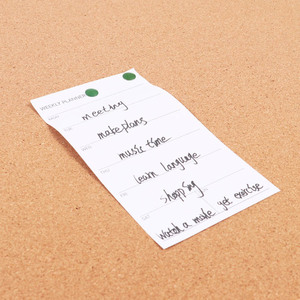 WEEKLY PLANNER
meeting
make plans
music time
learn language
shopping
watch a make yet exercise